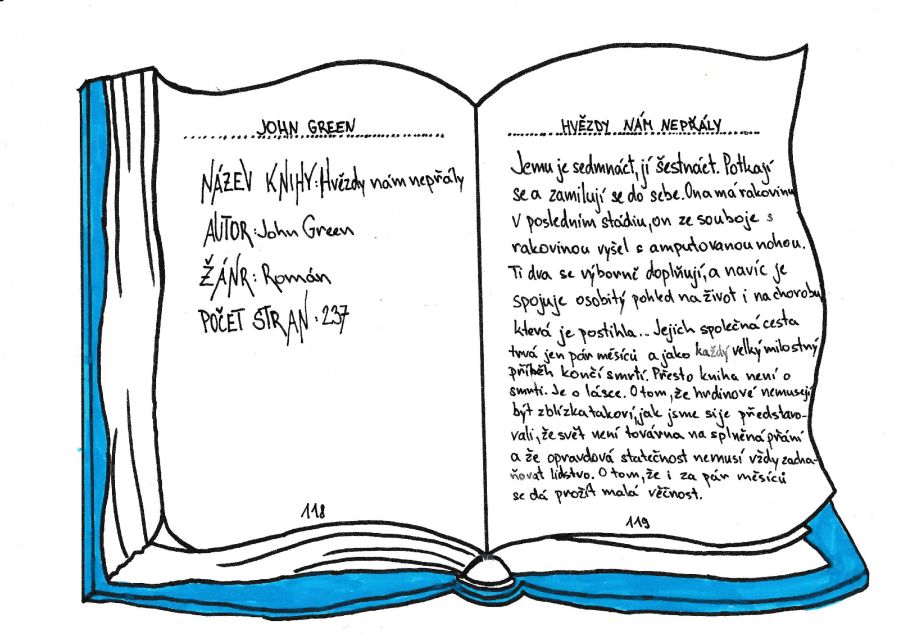 JOHN GREEN
NÁZEV KNIHY: Hvězdy nám nepřály
AUTOR: John Green
ŽÁNR: Román
POČET STRAN: 237
118
HVĚZDY NÁM NEPŘÁLY
Jemu je sedmnáct, jí šestnáct. Potkají
se a zamilují se do sebe. Ona má rakovinu
v posledním stádiu, on ze souboje s
rakovinou vyšel s amputovanou nohou.
Ti dva se výborně doplňují, a navíc je
spojuje osobitý pohled na život i na chorobu,
která je postihla... Jejich společná cesta
trvá jen pár měsíců a jako každý velký milostný
příběh končí smrtí. Přesto kniha není o
smrti. Je o lásce. O tom, že hrdinové nemusejí
být zblízka takoví, jak jsme si je představo-
vali, že svět není továrna na splněná přání
a že opravdová statečnost nemusí vždy zachra-
ňovat lidstvo. O tom, že i za pár měsíců
se dá prožít malá věčnost.
119